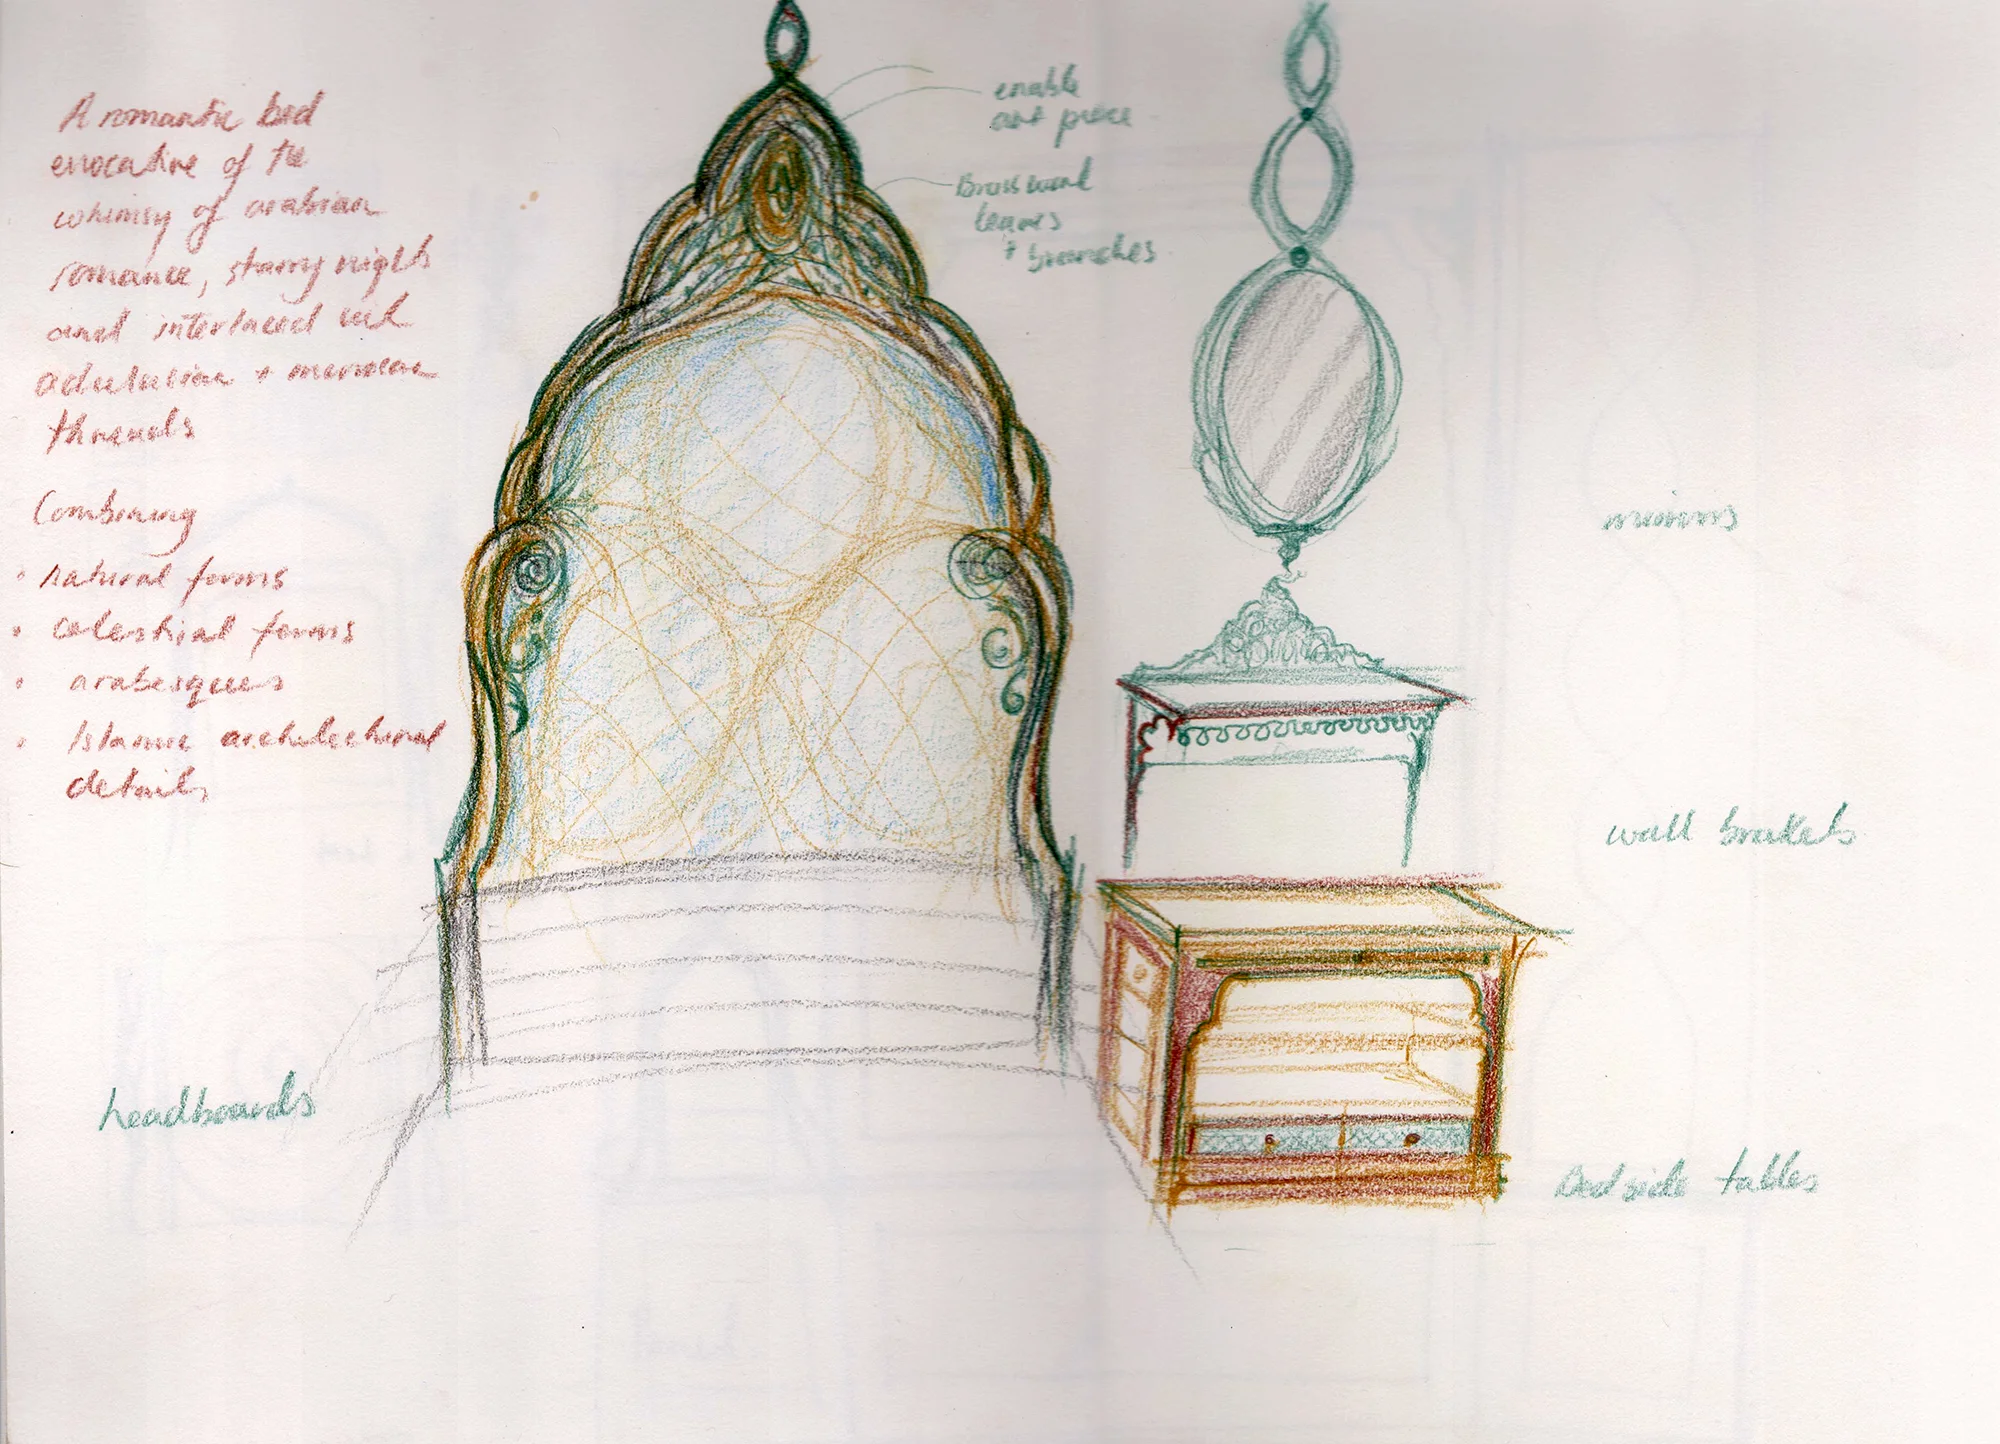 A romantic bed
evocative of the
whimsy of arabian
romance, starry nights
and interlaced
+
threads
Combining
• natural forms
• celestial forms
• arabesques
• Islamic architectural
details
headboards
enable
art piece
leaves
+ branches
mirrors
wall brackets
Bedside tables